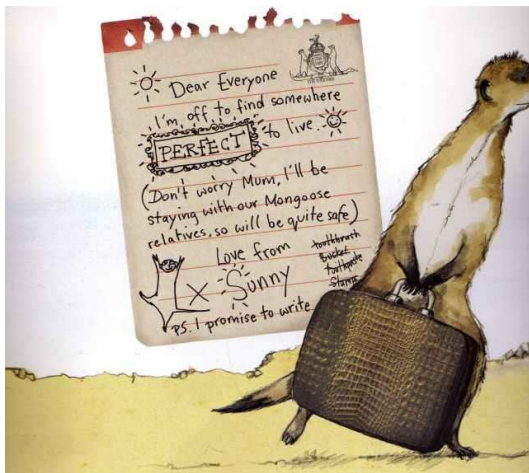 Dear Everyone
I'm off to find somewhere
PERFECT to live.
(Don't worry Mum, I'll be
staying with our Mongoose
relatives, so will be quite safe)
Love from
x Sunny
toothbrush
Bucket
toothpaste
Stamps
PS. I promise to write